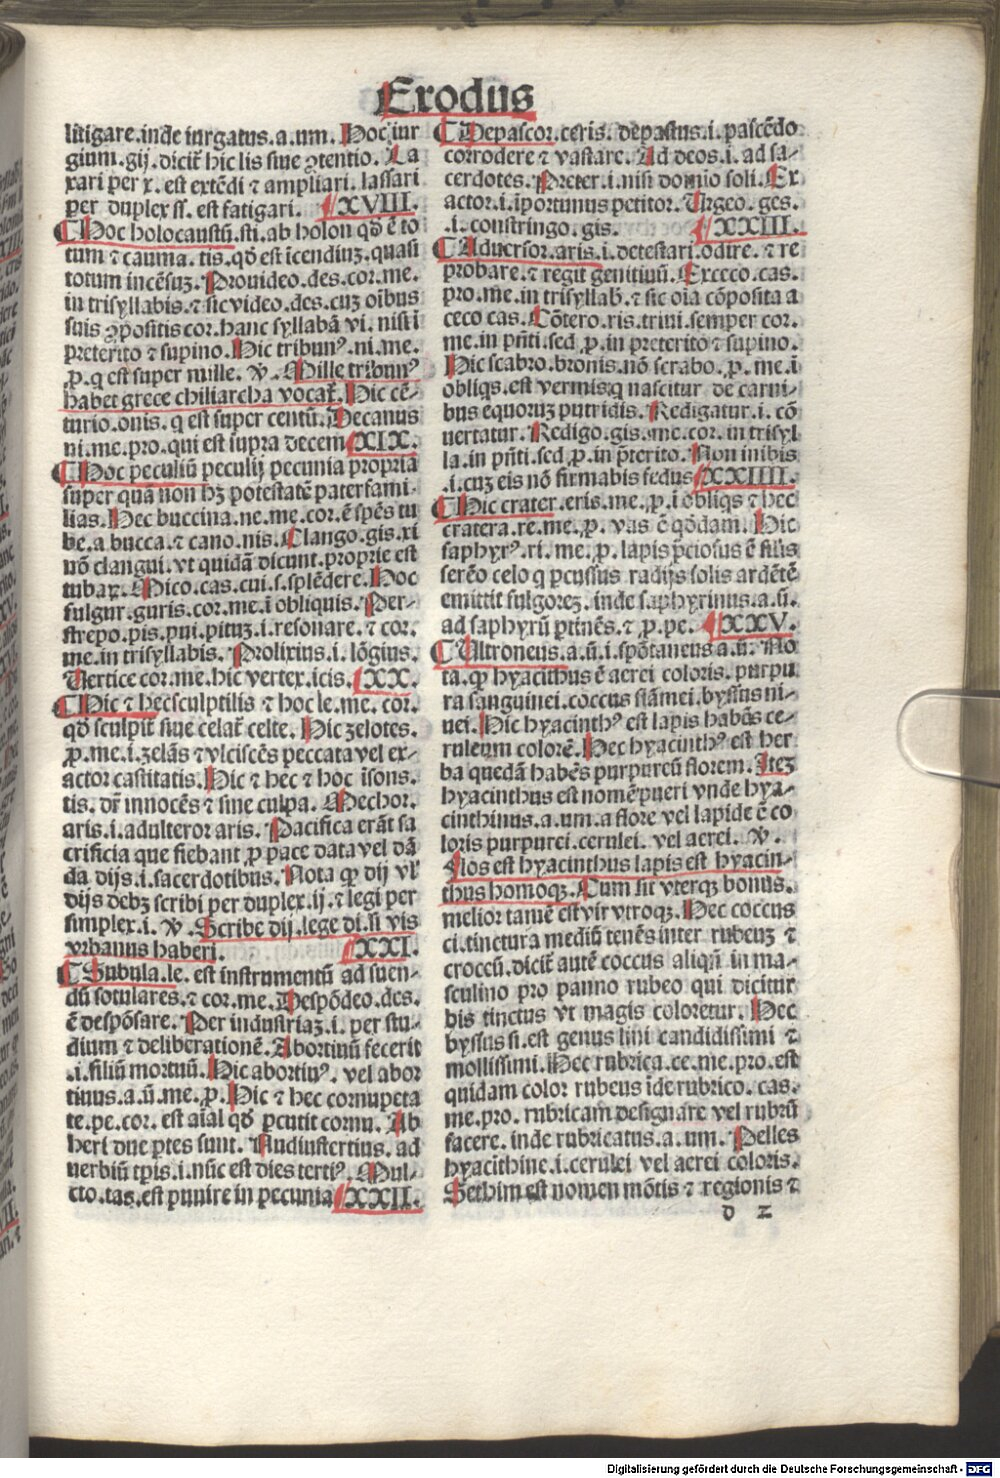 Exodus
litigare.inde iurgatus.a.um. Hoc iur
gium.gij.dicit̃ hic lis siue ꝯtentio. La
xari per x. est extẽdi ⁊ ampliari. lassari
per duplex ss. est fatigari. XVIII.
Hoc holocaustũ.sti.ab holon qđ ẽ to
tum ⁊ cauma. tis. qđ est ĩcendiuꝫ. quasi
totum incẽsuꝫ. Prouideo.des.cor.me.
in trisyllabis.⁊ sic video.des.cuꝫ oĩbus
suis ꝯpositis cor.hanc syllabã vi.nisi ĩ
preterito ⁊ supino. Hic tribunꝰ.ni.me.
ꝓ.q est super mille. V. Mille tribunꝰ
habet grece chiliarcha vocat̃. Hic cẽ-
turio.onis. q est super centũ. Decanus
ni.me.pro.qui est supra decem XIX.
Hoc peculiũ peculij pecunia propria
super quã non hꝫ potestatẽ paterfami-
lias. Hec buccina.ne.me.cor.ẽ spẽs tu
be.a bucca.⁊ cano.nis. Clango.gis.xi
nõ clangui.vt quidã dicunt.proprie est
tubaꝝ. Mico.cas.cui.s.splẽdere. Hoc
fulgur.guris.cor.me.ĩ obliquis. Per-
strepo.pis.pui.pituꝫ.i.resonare.⁊ cor.
me.in trisyllabis. Prolixius.i.lõgius.
Vertice cor.me.hic vertex.icis. XX.
Hic ⁊ hec sculptilis ⁊ hoc le.me.cor.
qđ sculpit̃ siue celat̃ celte. Hic zelotes.
ꝓ.me.i.zelãs ⁊ vlciscẽs peccata vel ex-
actor castitatis. Hic ⁊ hec ⁊ hoc ĩsons.
tis. dr̃ innocẽs ⁊ sine culpa. Mechor.
aris.i.adulteror aris. Pacifica erãt sa
crificia que fiebant ꝓ pace data vel dã
da dijs.i.sacerdotibus. Nota ꝙ dij vl̃
dijs debꝫ scribi per duplex.ij.⁊ legi per
simplex.i. V. Scribe dij.lege di.si vis
vrbanus haberi. XXI.
Subula.le. est instrumentũ ad suen-
dũ sotulares.⁊ cor.me. Despõdeo.des.
ẽ despõsare. Per industriaꝫ.i. per stu-
dium ⁊ deliberationẽ. Abortiuũ fecerit
.i.filiũ mortuũ. Hic abortiuꝰ. vel abor
tiuus.a.ũ.me.ꝓ. Hic ⁊ hec cornupeta
te.pe.cor. est aĩal qđ ꝑcutit cornu. Ab
heri due ꝑtes sunt. Nudiustertius. ad
uerbiũ tꝑis.i.nũc est dies tertiꝰ. Mul-
cto.tas.est punire in pecunia XXII.
Depascor.ceris. depastus.i.pascẽdo
corrodere ⁊ vastare. Ad deos.i.ad sa-
cerdotes. Preter.i.nisi domĩo soli. Ex
actor.i.ĩportunus petitor. Vrgeo.ges.
.i.constringo.gis. XXIII.
Aduersor.aris.i.detestari.odire.⁊ re
probare.⁊ regit genitiuũ. Exceco.cas.
pro.me.in trisyllab̃.⁊ sic oĩa cõposita a
ceco cas. Cõtero.ris.triui.semper cor.
me.in pñti.sed.ꝓ.in preterito ⁊ supino.
Hic scabro.bronis.nõ scrabo.ꝓ.me.ĩ
obliq̃s.est vermis.q nascitur de carni-
bus equoruꝫ putridis. Redigatur.i.cõ
uertatur. Redigo.gis.me.cor.in trisyl
la.in pñti.sed.ꝓ.in p̃terito. Non inibis
.i.cuꝫ eis nõ firmabis fedus XXIIII.
Hic crater.eris.me.ꝓ.ĩ obliq̃s ⁊ hec
cratera.re.me.ꝓ. vas ẽ qđdam. Hic
saphyrꝰ.ri.me.ꝓ.lapis p̃ciosus ẽ siĩlis
serẽo celo q ꝑcussus radijs solis ardẽtẽ
emittit fulgoreꝫ. inde saphyrinus.a.ũ.
ad saphyrũ ꝑtinẽs.⁊ ꝓ.pe. XXV.
Ultroneus.a.ũ.i.spõtaneus a.ũ. No
ta.ꝙ hyacithus ẽ aerei coloris.purpu
ra sanguinei.coccus flãmei.byssus ni-
uei. Hic hyacinthꝰ est lapis habẽs ce-
ruleum colorẽ. Hec hyacinthꝰ est her
ba quedã habẽs purpureũ florem. Iteꝫ
hyacinthus est nomẽ pueri vnde hya-
cinthinus.a.um.a flore vel lapide ẽ co
loris purpurei.cerulei. vel aerei. V.
Flos est hyacinthus lapis est hyacin-
thus homoqꝫ. Cum sit vterqꝫ bonus.
melior tamẽ est vir vtroqꝫ. Hec coccus
ci.tinctura mediũ tenẽs inter rubeuꝫ ⁊
croceũ.dicit̃ autẽ coccus aliqñ in ma-
sculino pro panno rubeo qui dicitur
bis tinctus vt magis coloretur. Hec
byssus si.est genus lini candidissimi ⁊
mollissimi. Hec rubrica.ce.me.pro.est
quidam color rubeus ĩde rubrico.cas.
me.pro. rubricam designare vel rubrũ
facere. inde rubricatus.a.um. Pelles
hyacithine.i.cerulei vel aerei coloris.
Sethim est nomen mõtis ⁊ regionis ⁊
d 2
Digitalisierung gefördert durch die Deutsche Forschungsgemeinschaft - DFG